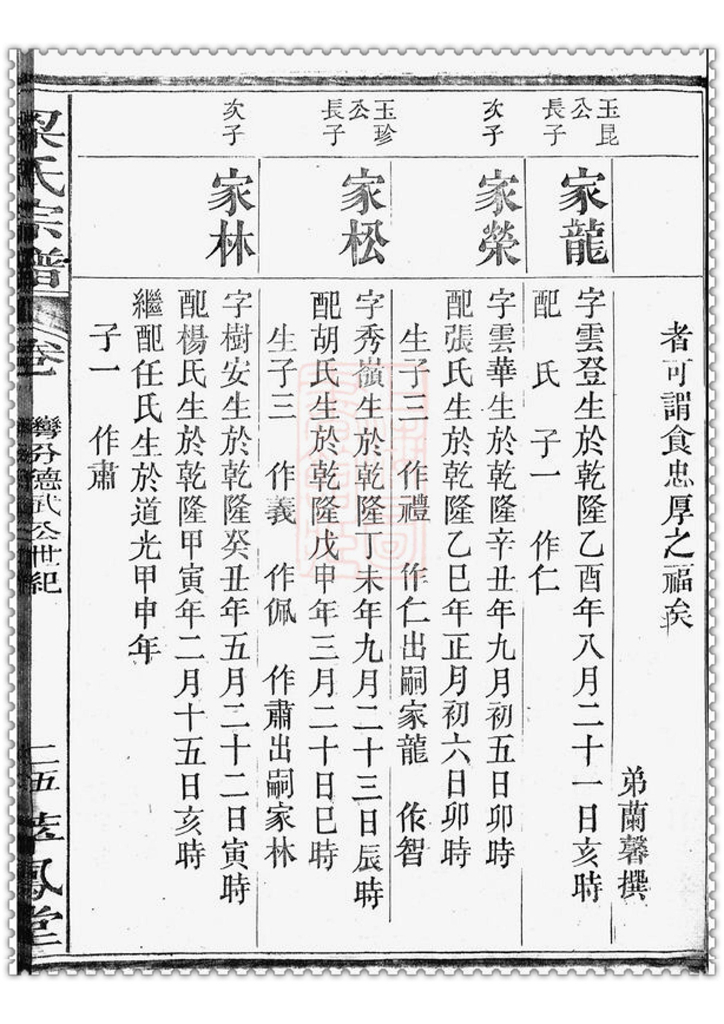 者可謂食忠厚之福矣
弟蘭馨撰
玉昆
公
長子
家龍
字雲登生於乾隆乙酉年八月二十一日亥時
配 氏 子一 作仁
次子
家榮
字雲華生於乾隆辛丑年九月初五日卯時
配張氏生於乾隆乙巳年正月初六日卯時
生子三 作禮 作仁出嗣家龍 作智
玉珍
公
長子
家松
字秀嶺生於乾隆丁未年九月二十三日辰時
配胡氏生於乾隆戊申年三月二十日巳時
生子三 作義 作佩 作肅出嗣家林
次子
家林
字樹安生於乾隆癸丑年五月二十二日寅時
配楊氏生於乾隆甲寅年二月十五日亥時
繼配任氏生於道光甲申年
子一 作肅
梁氏宗譜
卷一
灣分德武公世紀
二五
鳳堂